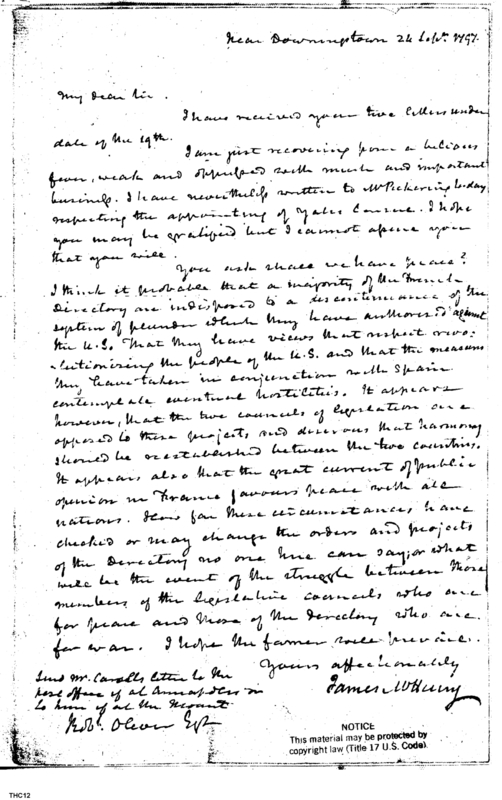 Near Downingstown 24 Sept. 1797.
My dear Sir.
I have received your two letters under
date of the 19th.
I am just recovering from a belious
fever, weak and oppressed with much and important
business. I have nevertheless written to Mr Pickering to day
respecting the appointing of Yates Consul. I hope
you may be gratified but I cannot assure you
that you will.
You ask shall we have peace?
I think it probable that a majority of the French
Directory are indisposed to a discontinuance of the
system of plunder which they have authorised against
the U.S. That they have views that respect revo-
lutionizing the people of the U.S. and that the measures
they have taken in conjunction with Spain
contemplate eventual hostilities. It appears
however, that the two councils of legislation are
opposed to these projects and desirous that harmony
should be reestablished between the two countries.
It appears also that the great current of public
opinion in France favours peace with all
nations. How far these circumstances have
checked or may change the orders and projects
of the Directory no one here can say; or what
will be the event of the struggle between those
members of the legislative councils who are
for peace and those of the directory who are
for war. I hope the former will prevail.
Yours affectionately
James McHenry
Send Mr. Carolls letter to the
post office if at Annapolis or
to him if at the Mount
Robt. Oliver Esqr
NOTICE
This material may be protected by
copyright law (Title 17 U.S. Code).
THC12